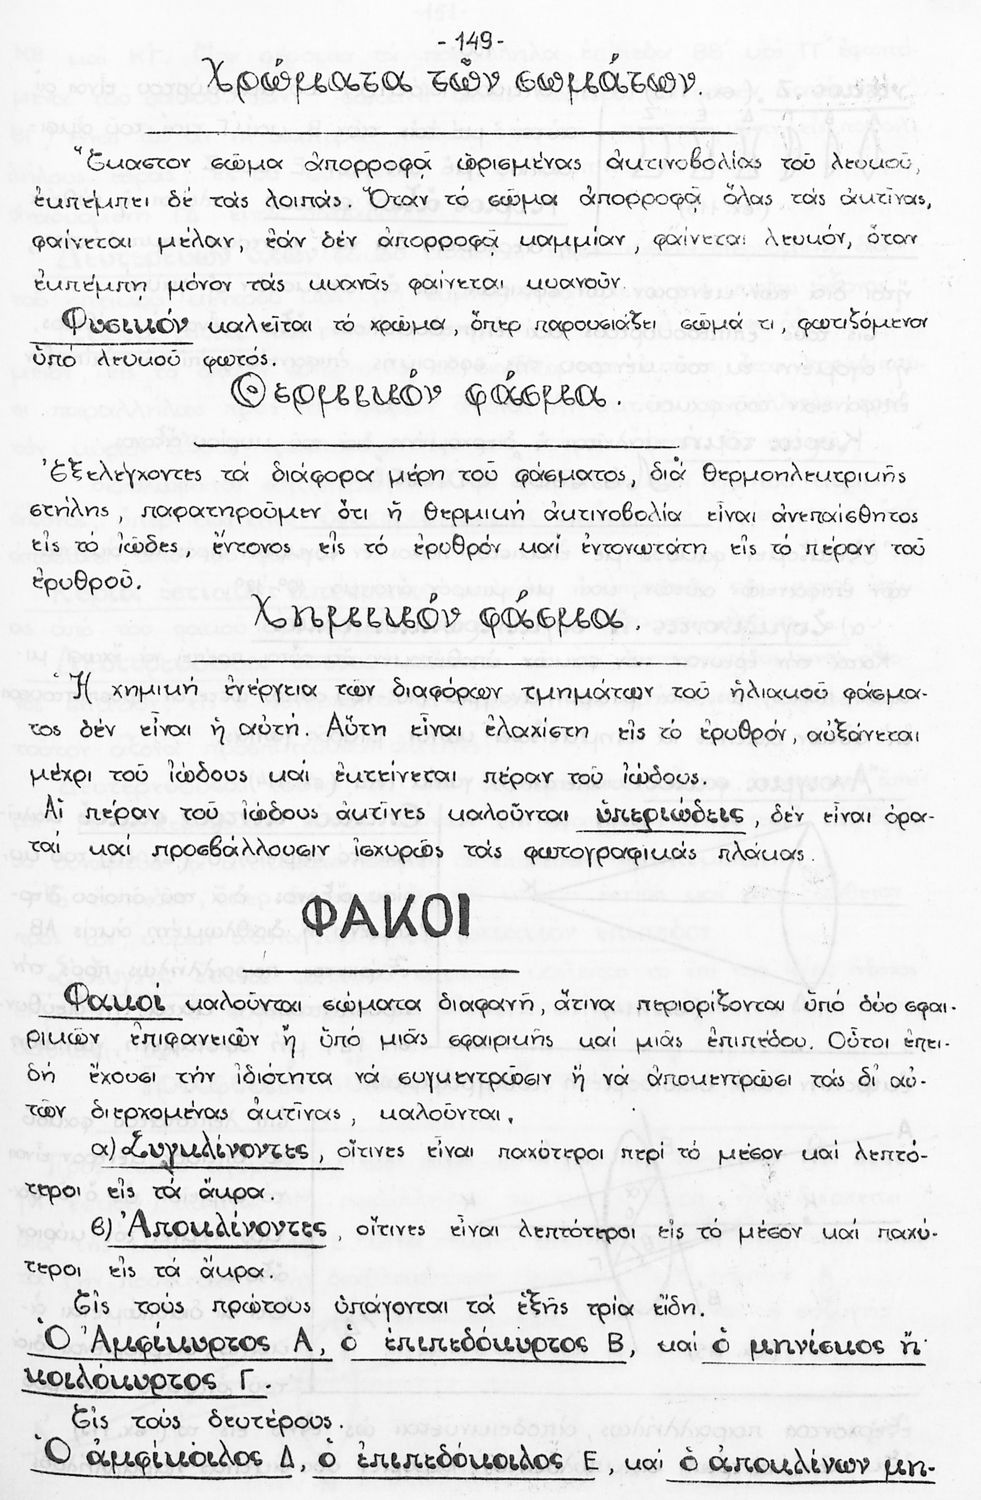 -149-
Χρώματα τῶν σωμάτων.
Ἕκαστον σῶμα ἀπορροφᾷ ὡρισμένας ἀκτινοβολίας τοῦ λευκοῦ,
ἐκπέμπει δέ τάς λοιπάς. Ὅταν τό σῶμα ἀπορροφᾷ ὅλας τάς ἀκτῖνας,
φαίνεται μέλαν, ἐάν δέν ἀπορροφᾷ καμμίαν, φαίνεται λευκόν, ὅταν
ἐκπέμπῃ μόνον τάς κυανᾶς φαίνεται κυανοῦν.
Φυσικόν καλεῖται τό χρῶμα, ὅπερ παρουσιάζει σῶμά τι, φωτιζόμενον
ὑπό λευκοῦ φωτός.
Θερμικόν φάσμα.
Ἐξελέγχοντες τά διάφορα μέρη τοῦ φάσματος, διά θερμοηλεκτρικῆς
στήλης, παρατηροῦμεν ὅτι ἡ θερμική ἀκτινοβολία εἶναι ἀνεπαίσθητος
εἰς τό ἰῶδες, ἔντονος εἰς τό ἐρυθρόν καί ἐντονωτάτη εἰς τό πέραν τοῦ
ἐρυθροῦ.
Χημικόν φάσμα.
Ἡ χημική ἐνέργεια τῶν διαφόρων τμημάτων τοῦ ἡλιακοῦ φάσμα-
τος δέν εἶναι ἡ αὐτή. Αὕτη εἶναι ἐλαχίστη εἰς τό ἐρυθρόν, αὐξάνεται
μέχρι τοῦ ἰώδους καί ἐκτείνεται πέραν τοῦ ἰώδους.
Αἱ πέραν τοῦ ἰώδους ἀκτῖνες καλοῦνται ὑπεριώδεις, δέν εἶναι ὁρα-
ταί καί προσβάλλουσιν ἰσχυρῶς τάς φωτογραφικάς πλάκας.
ΦΑΚΟΙ
Φακοί καλοῦνται σώματα διαφανῆ, ἅτινα περιορίζονται ὑπό δύο σφαι-
ρικῶν ἐπιφανειῶν ἤ ὑπό μιᾶς σφαιρικῆς καί μιᾶς ἐπιπέδου. Οὗτοι ἐπει-
δή ἔχουσι τήν ἰδιότητα νά συγκεντρώσιν ἤ νά ἀποκεντρώσι τάς δι' αὐ-
τῶν διερχομένας ἀκτῖνας, καλοῦνται.
α) Συγκλίνοντες, οἵτινες εἶναι παχύτεροι περί τό μέσον καί λεπτό-
τεροι εἰς τά ἄκρα.
β) Ἀποκλίνοντες, οἵτινες εἶναι λεπτότεροι εἰς τό μέσον καί παχύ-
τεροι εἰς τά ἄκρα.
Εἰς τούς πρώτους ὑπάγονται τά ἑξῆς τρία εἴδη.
Ὁ Ἀμφίκυρτος Α, ὁ ἐπιπεδόκυρτος Β, καί ὁ μηνίσκος ἤ
κοιλόκυρτος Γ.
Εἰς τούς δευτέρους.
Ὁ ἀμφίκοιλος Δ, ὁ ἐπιπεδόκοιλος Ε, καί ὁ ἀποκλίνων μη-